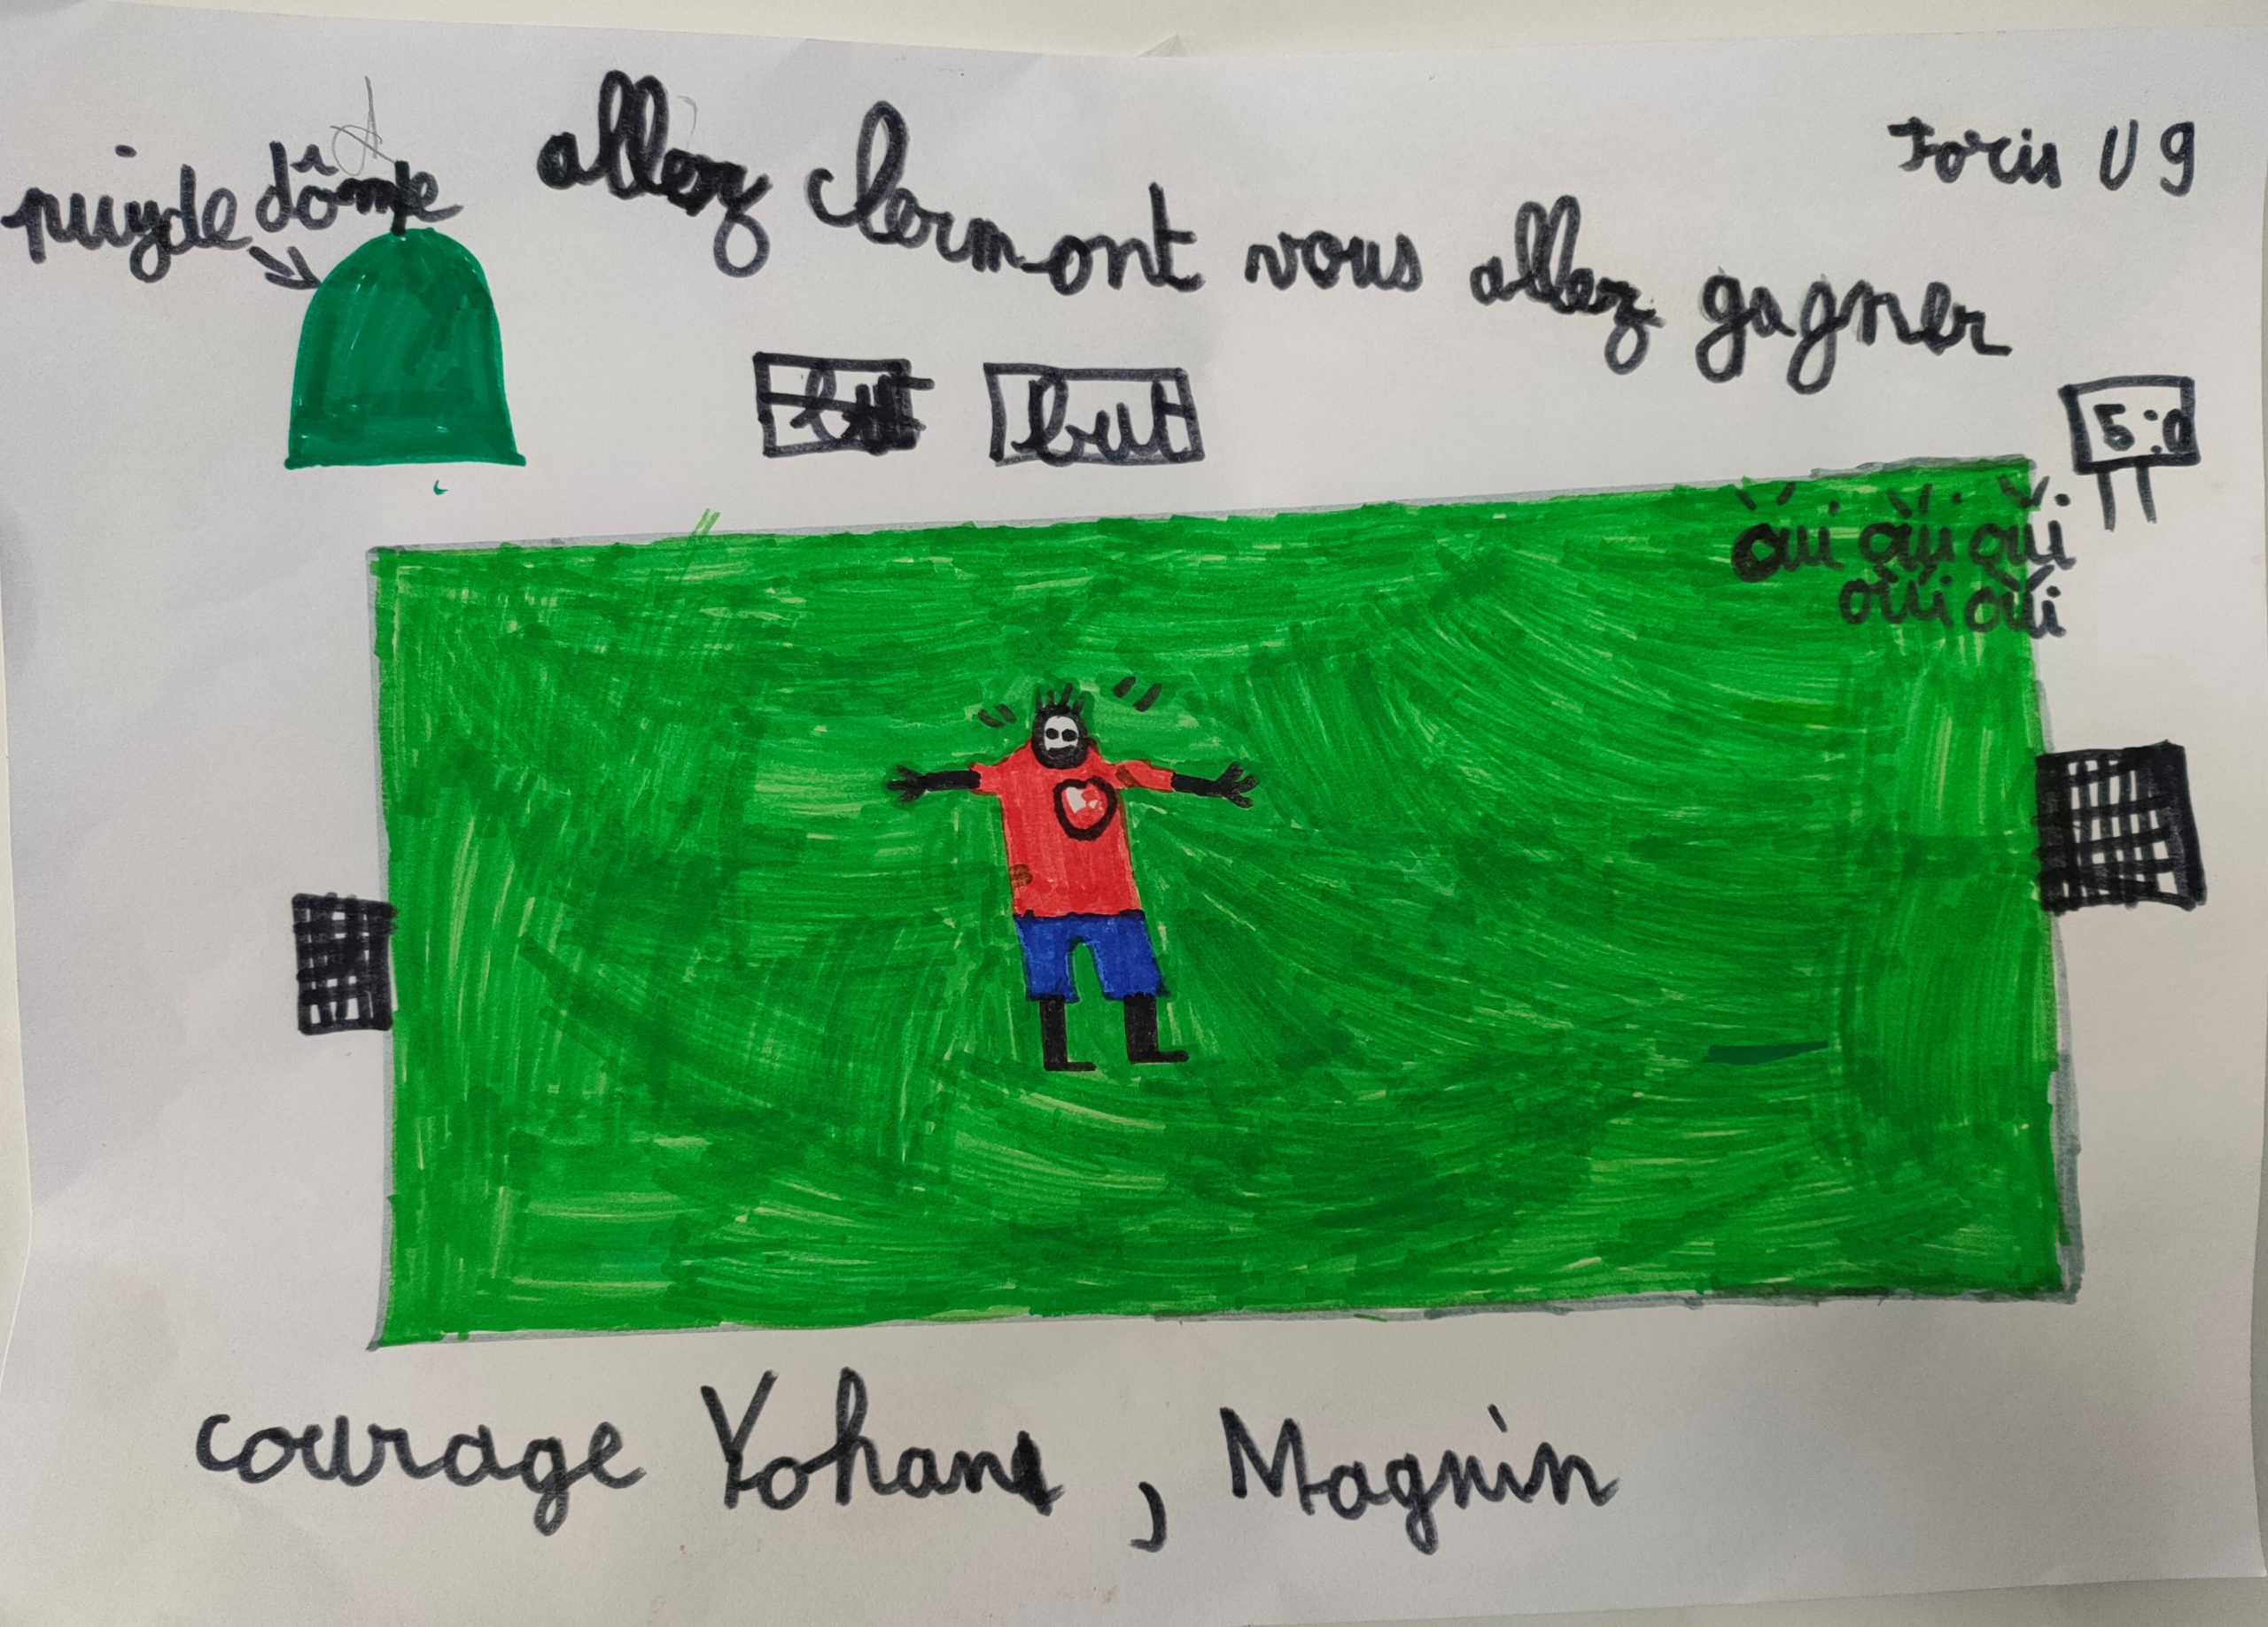 puyde dôme
allez clermont vous allez gagner
Joris U9
but but
5:0
oui oui oui
oui oui
courage Yohann, Magnin